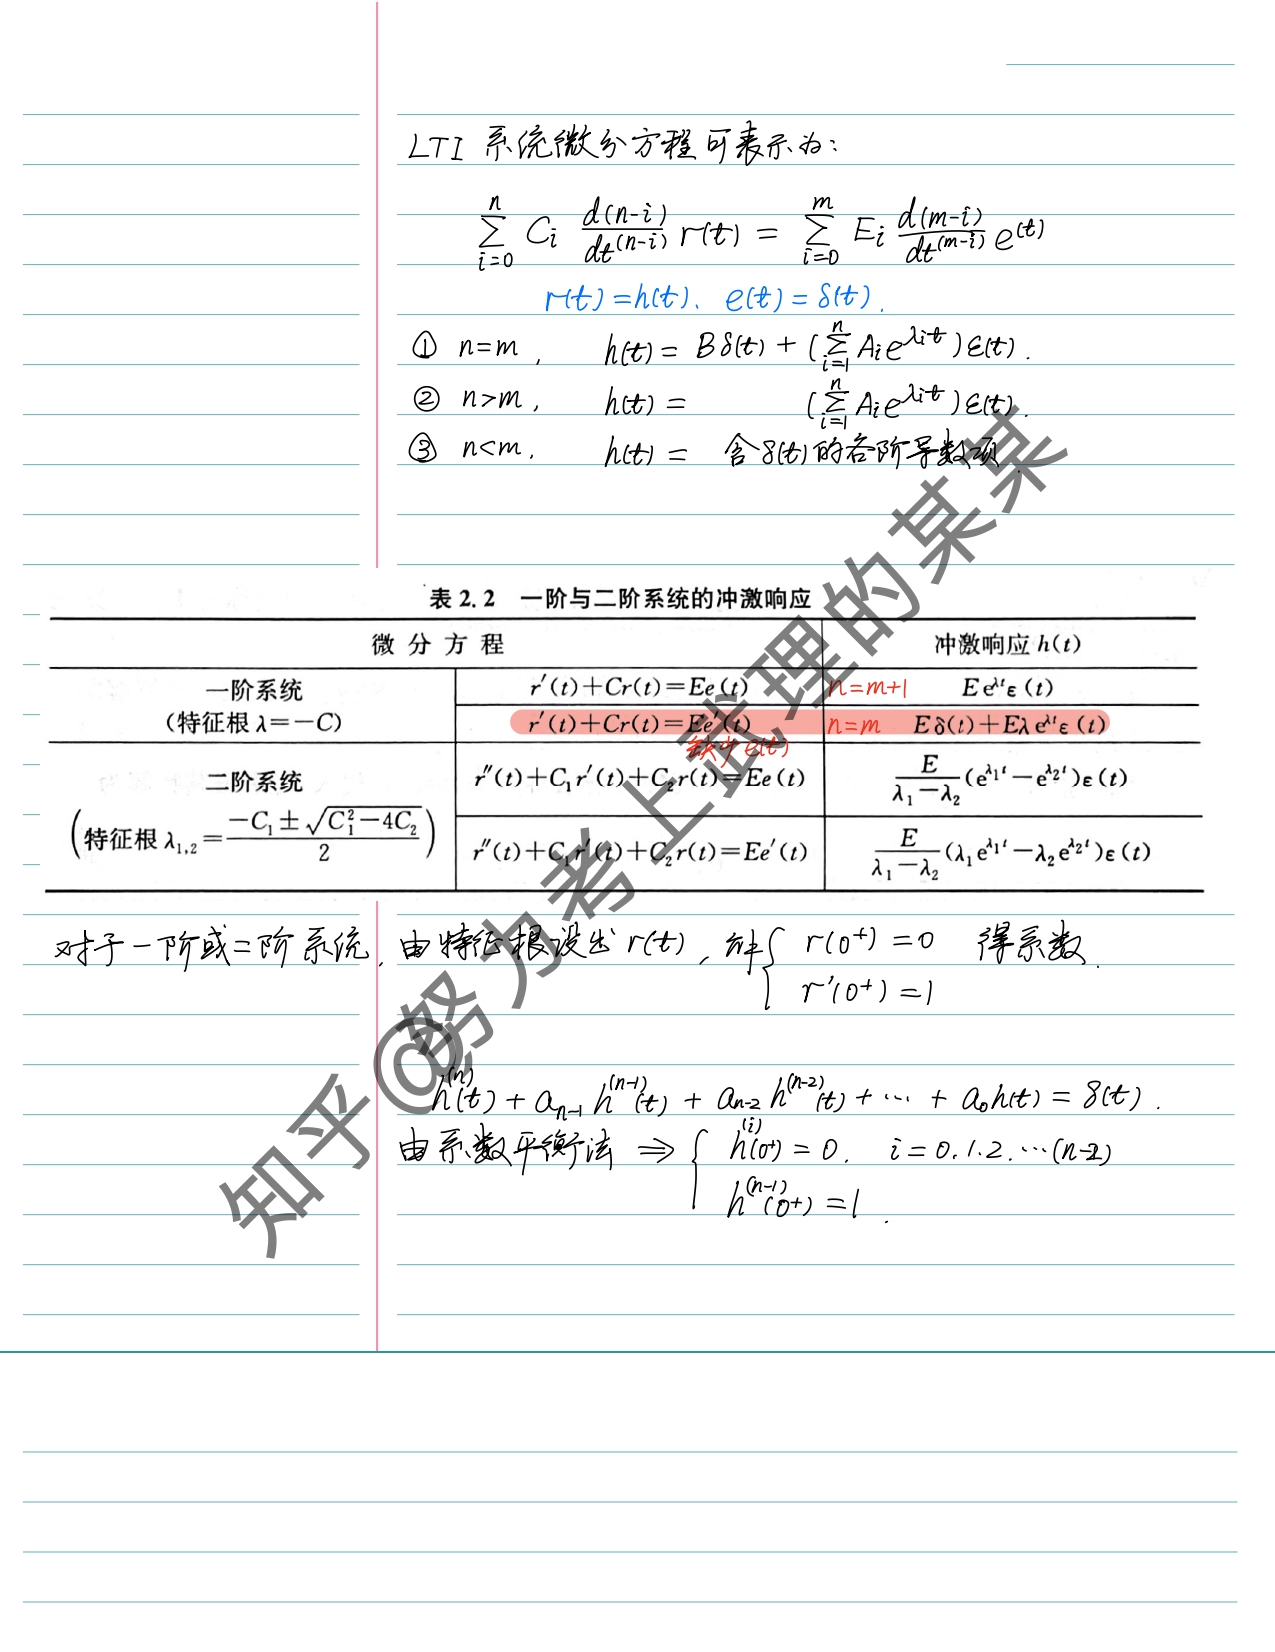 LTI 系统微分方程可表示为:
\sum_{i=0}^{n} C_i \frac{d(n-i)}{dt^{(n-i)}} r(t) = \sum_{i=0}^{m} E_i \frac{d(m-i)}{dt^{(m-i)}} e(t)
r(t)=h(t). e(t)=δ(t).
① n=m, h(t)= Bδ(t)+(\sum_{i=1}^{n} A_i e^{λ_i t})ε(t).
② n>m, h(t)= (\sum_{i=1}^{n} A_i e^{λ_i t})ε(t).
③ n<m. h(t)= 含δ(t)的各阶导数项.
表 2.2 一阶与二阶系统的冲激响应
微分方程 冲激响应 h(t)
一阶系统
(特征根 λ=-C)
r′(t)+Cr(t)=Ee(t) n=m+1 Ee^{λt}ε(t)
r′(t)+Cr(t)=Ee′(t) n=m Eδ(t)+Eλe^{λt}ε(t)
缺少e(t)
二阶系统
(特征根 λ_{1,2}=\frac{-C_1±\sqrt{C_1^2-4C_2}}{2})
r″(t)+C_1r′(t)+C_2r(t)=Ee(t) \frac{E}{λ_1-λ_2}(e^{λ_1t}-e^{λ_2t})ε(t)
r″(t)+C_1r′(t)+C_2r(t)=Ee′(t) \frac{E}{λ_1-λ_2}(λ_1e^{λ_1t}-λ_2e^{λ_2t})ε(t)
对于一阶或二阶系统, 由特征根设出 r(t), 解{ r(0^+)=0 得系数.
r′(0^+)=1
h^{(n)}(t)+a_{n-1}h^{(n-1)}(t)+a_{n-2}h^{(n-2)}(t)+⋯+a_0h(t)=δ(t).
由系数平衡法 ⇒ { h^{(i)}(0^+)=0. i=0.1.2.⋯(n-2)
h^{(n-1)}(0^+)=1.
知乎@努力考上武理的某某